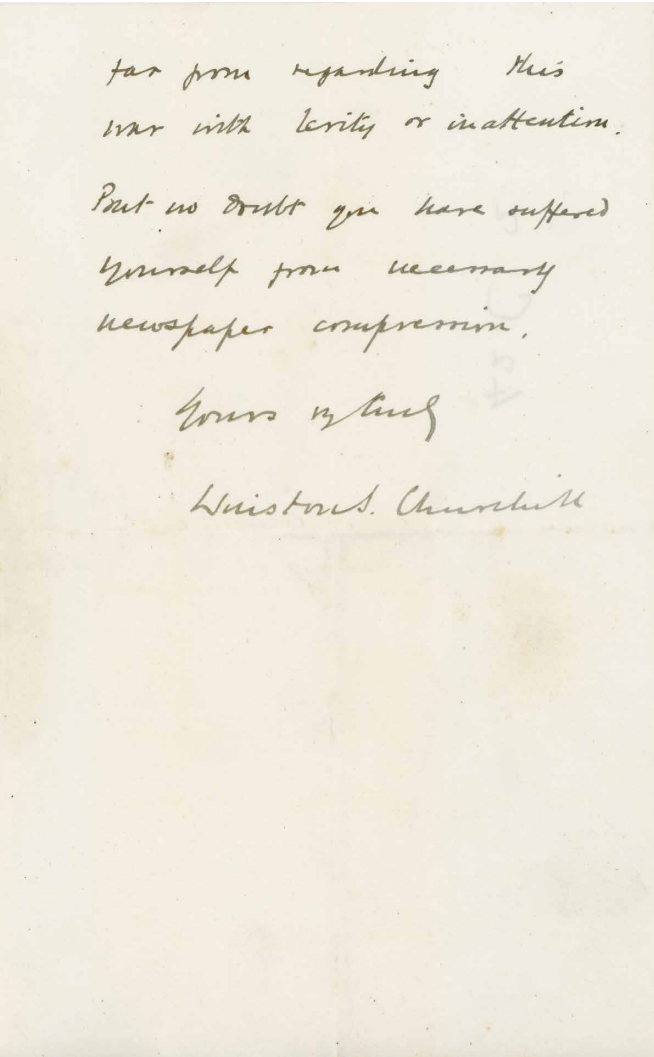 far from regarding this
war with levity or inattention.
But no doubt you have suffered
yourself from necessary
newspaper compression.
Yours vy truly
Winston S. Churchill